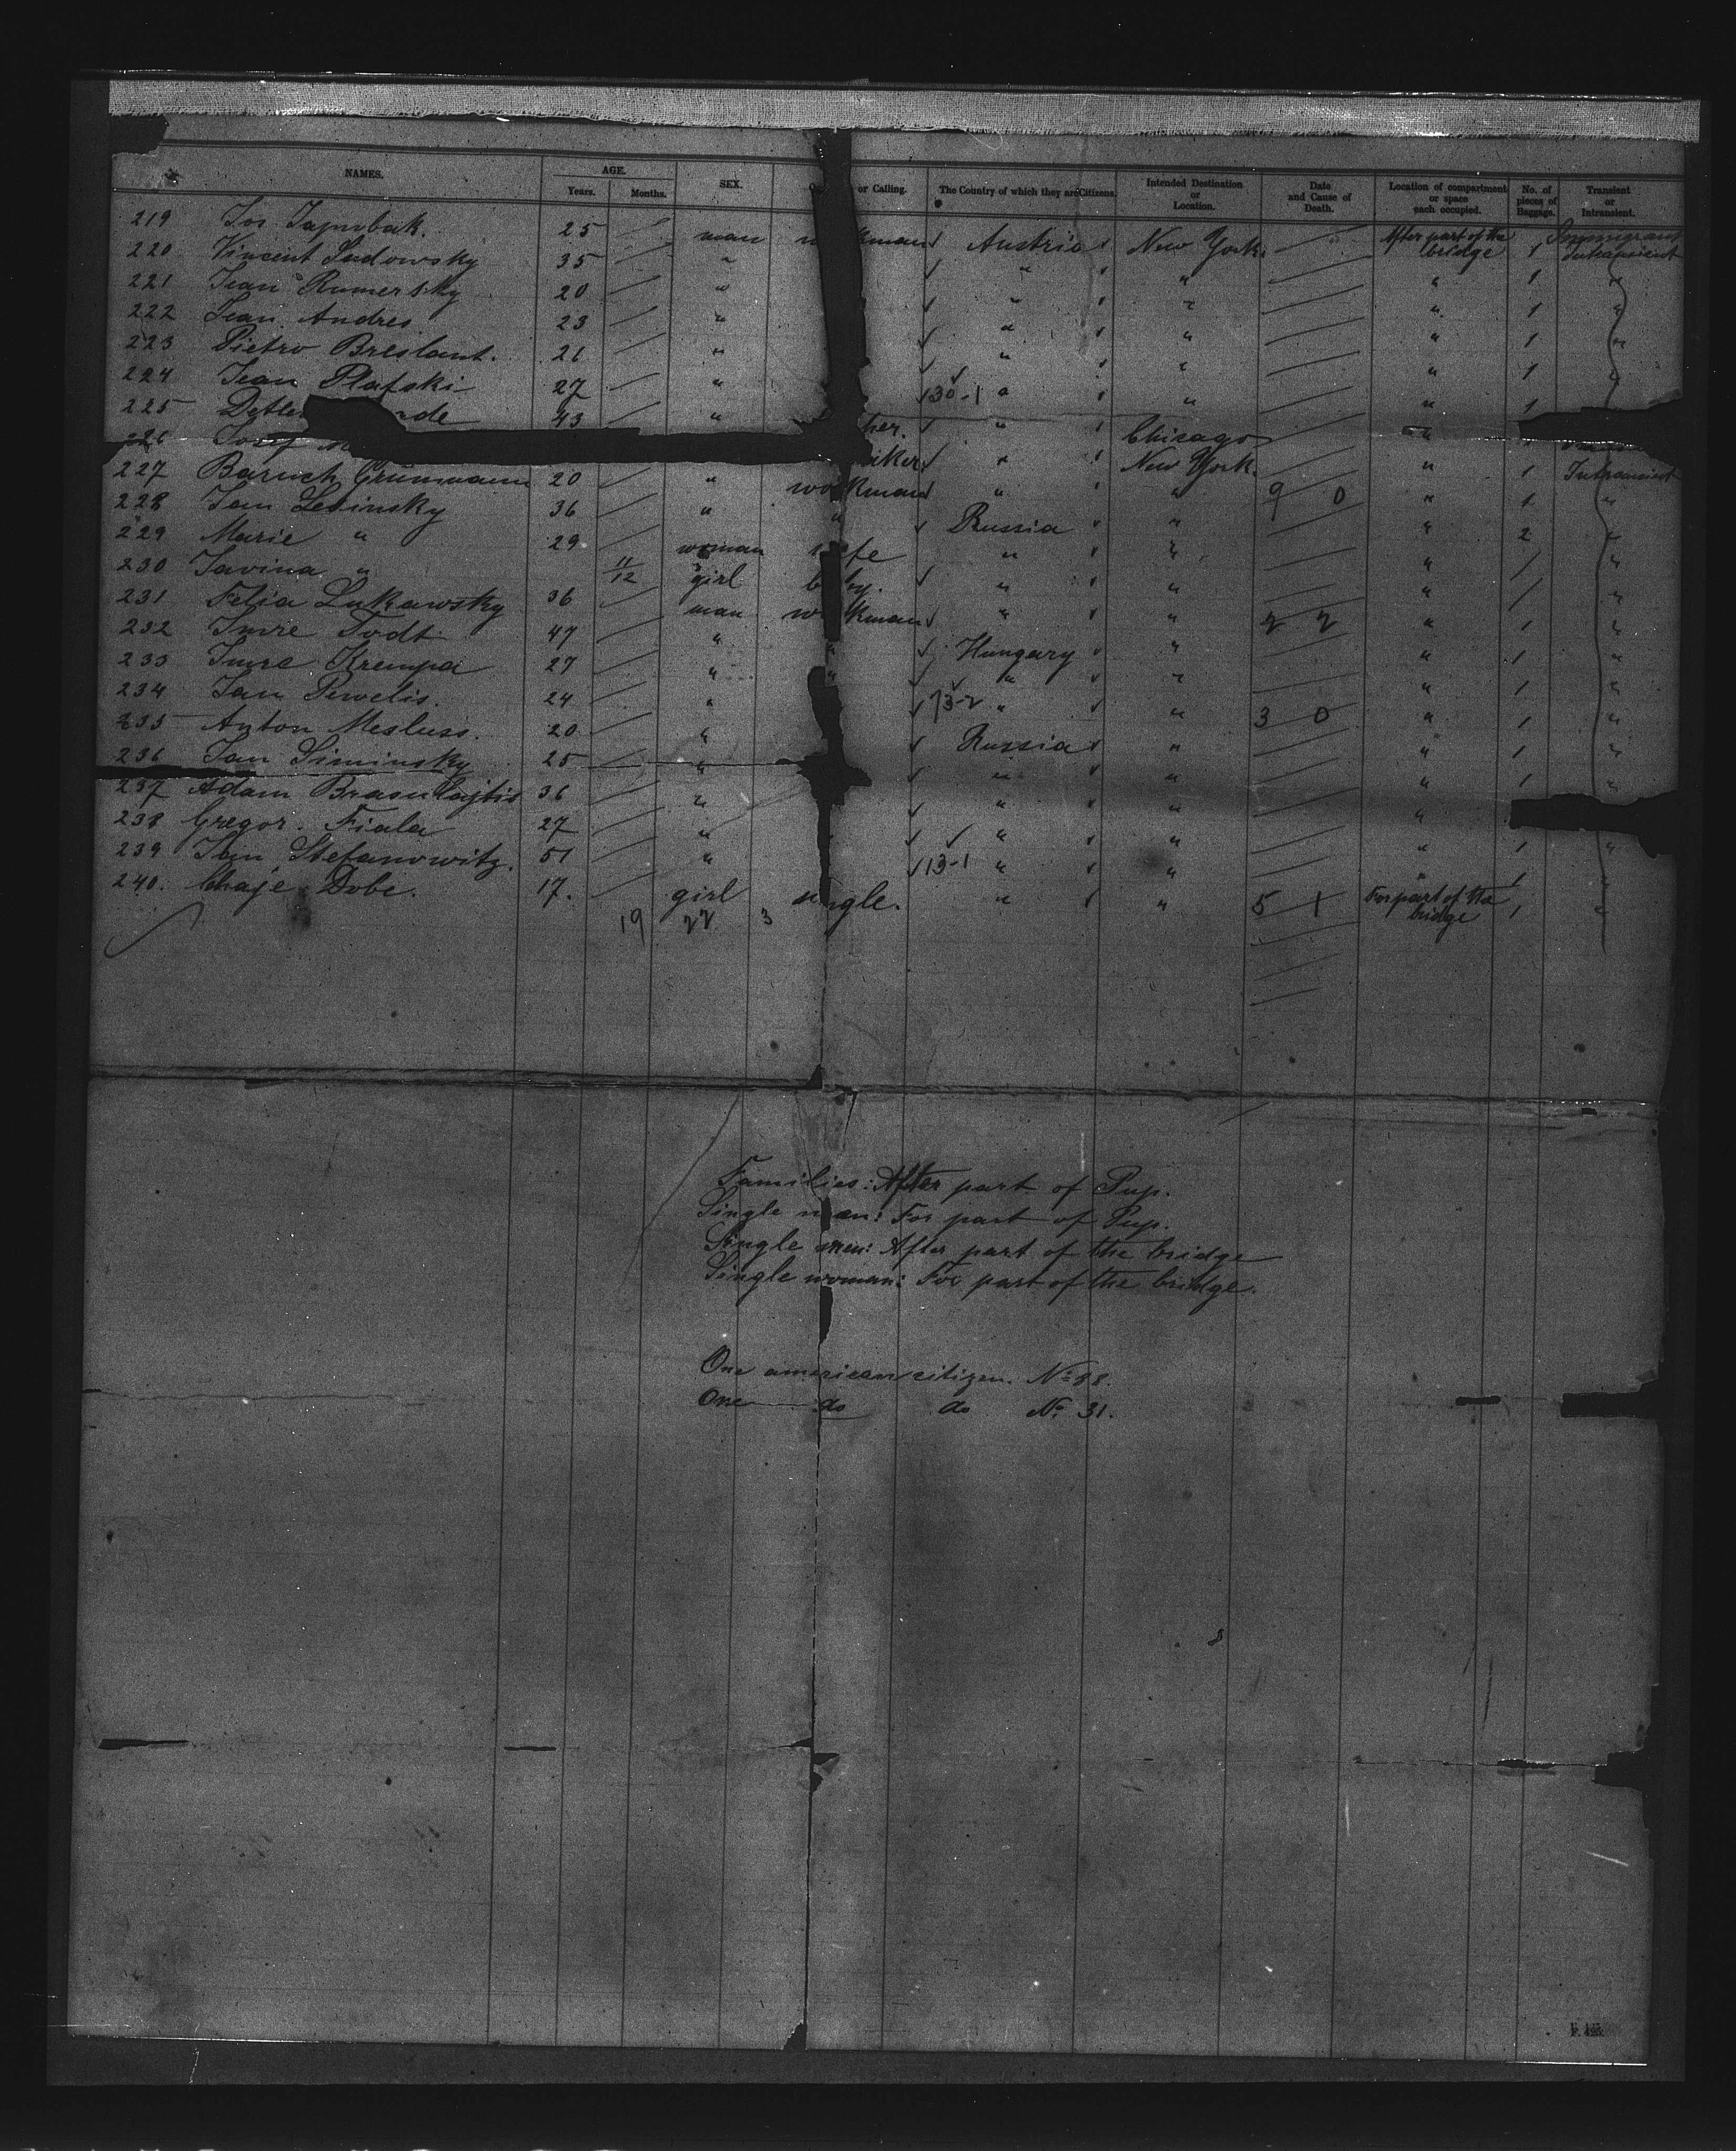 NAMES. AGE. SEX. or Calling. The Country of which they are Citizens. Intended Destination or Location. Date and Cause of Death. Location of compartment or space each occupied. No. of pieces of Baggage. Transient or Intransient.
Years. Months.
219 Jos 25 man kman Austria New York After part of the bridge 1 Immigrant Intransient
220 Vincent Sadowsky 35 " " " " 1 "
221 Jean Rumersky 20 " " " " 1 "
222 Jean Andres 23 " " " " 1 "
223 Pietro Breslant. 21 " " " " 1 "
224 Jean Plafski 27 " 130-1 " " " 1
225 43 " her. " Chicago "
226 Josef " New York. " 1 Intransient
227 Baruch Grünmann 20 " workman " " 9 0 " 1 "
228 Jan Lesinsky 36 " " Russia " " 2 "
229 Marie " 29 woman fe " " " "
230 Javina " 11/12 girl b by. " " " "
231 Felia Lukawsky 36 man workman " " 2 2 " 1 "
232 Imre Todt 47 " " Hungary " " 1 "
233 Imre Krempa 27 " " " " " 1 "
234 Jan Pewelis. 24 " 73-2 " " 3 0 " 1 "
235 Anton Mesluss. 20 " Russia " " 1 "
236 Jan Siminsky 25 " " " " 1 "
237 Adam 36 " " " "
238 Gregor. Fiala 27 " " " " 1 "
239 Jan Stefanowitz. 51 " 13-1 " " " 1 "
240. Chaje Dobe. 17. girl single. " " 5 1 For part of the bridge 1 "
19 22 3
Families: After part of Pup.
Single men: For part of Pup.
Single men: After part of the bridge
Single woman: For part of the bridge.
One american citizen. No 88.
One do do No. 31.